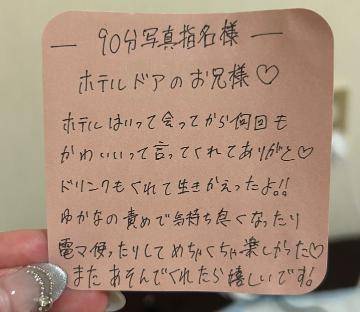 90分写真指名様
ホテルドアのお兄様♡
ホテルはいって会ってから何回も
かわいいって言ってくれてありがと♡
ドリンクもくれて生きかえったよ!!
ゆかなの責めで気持ち良くなったり
電マ使ったりしてめちゃくちゃ楽しかった♡
またあそんでくれたら嬉しいです!